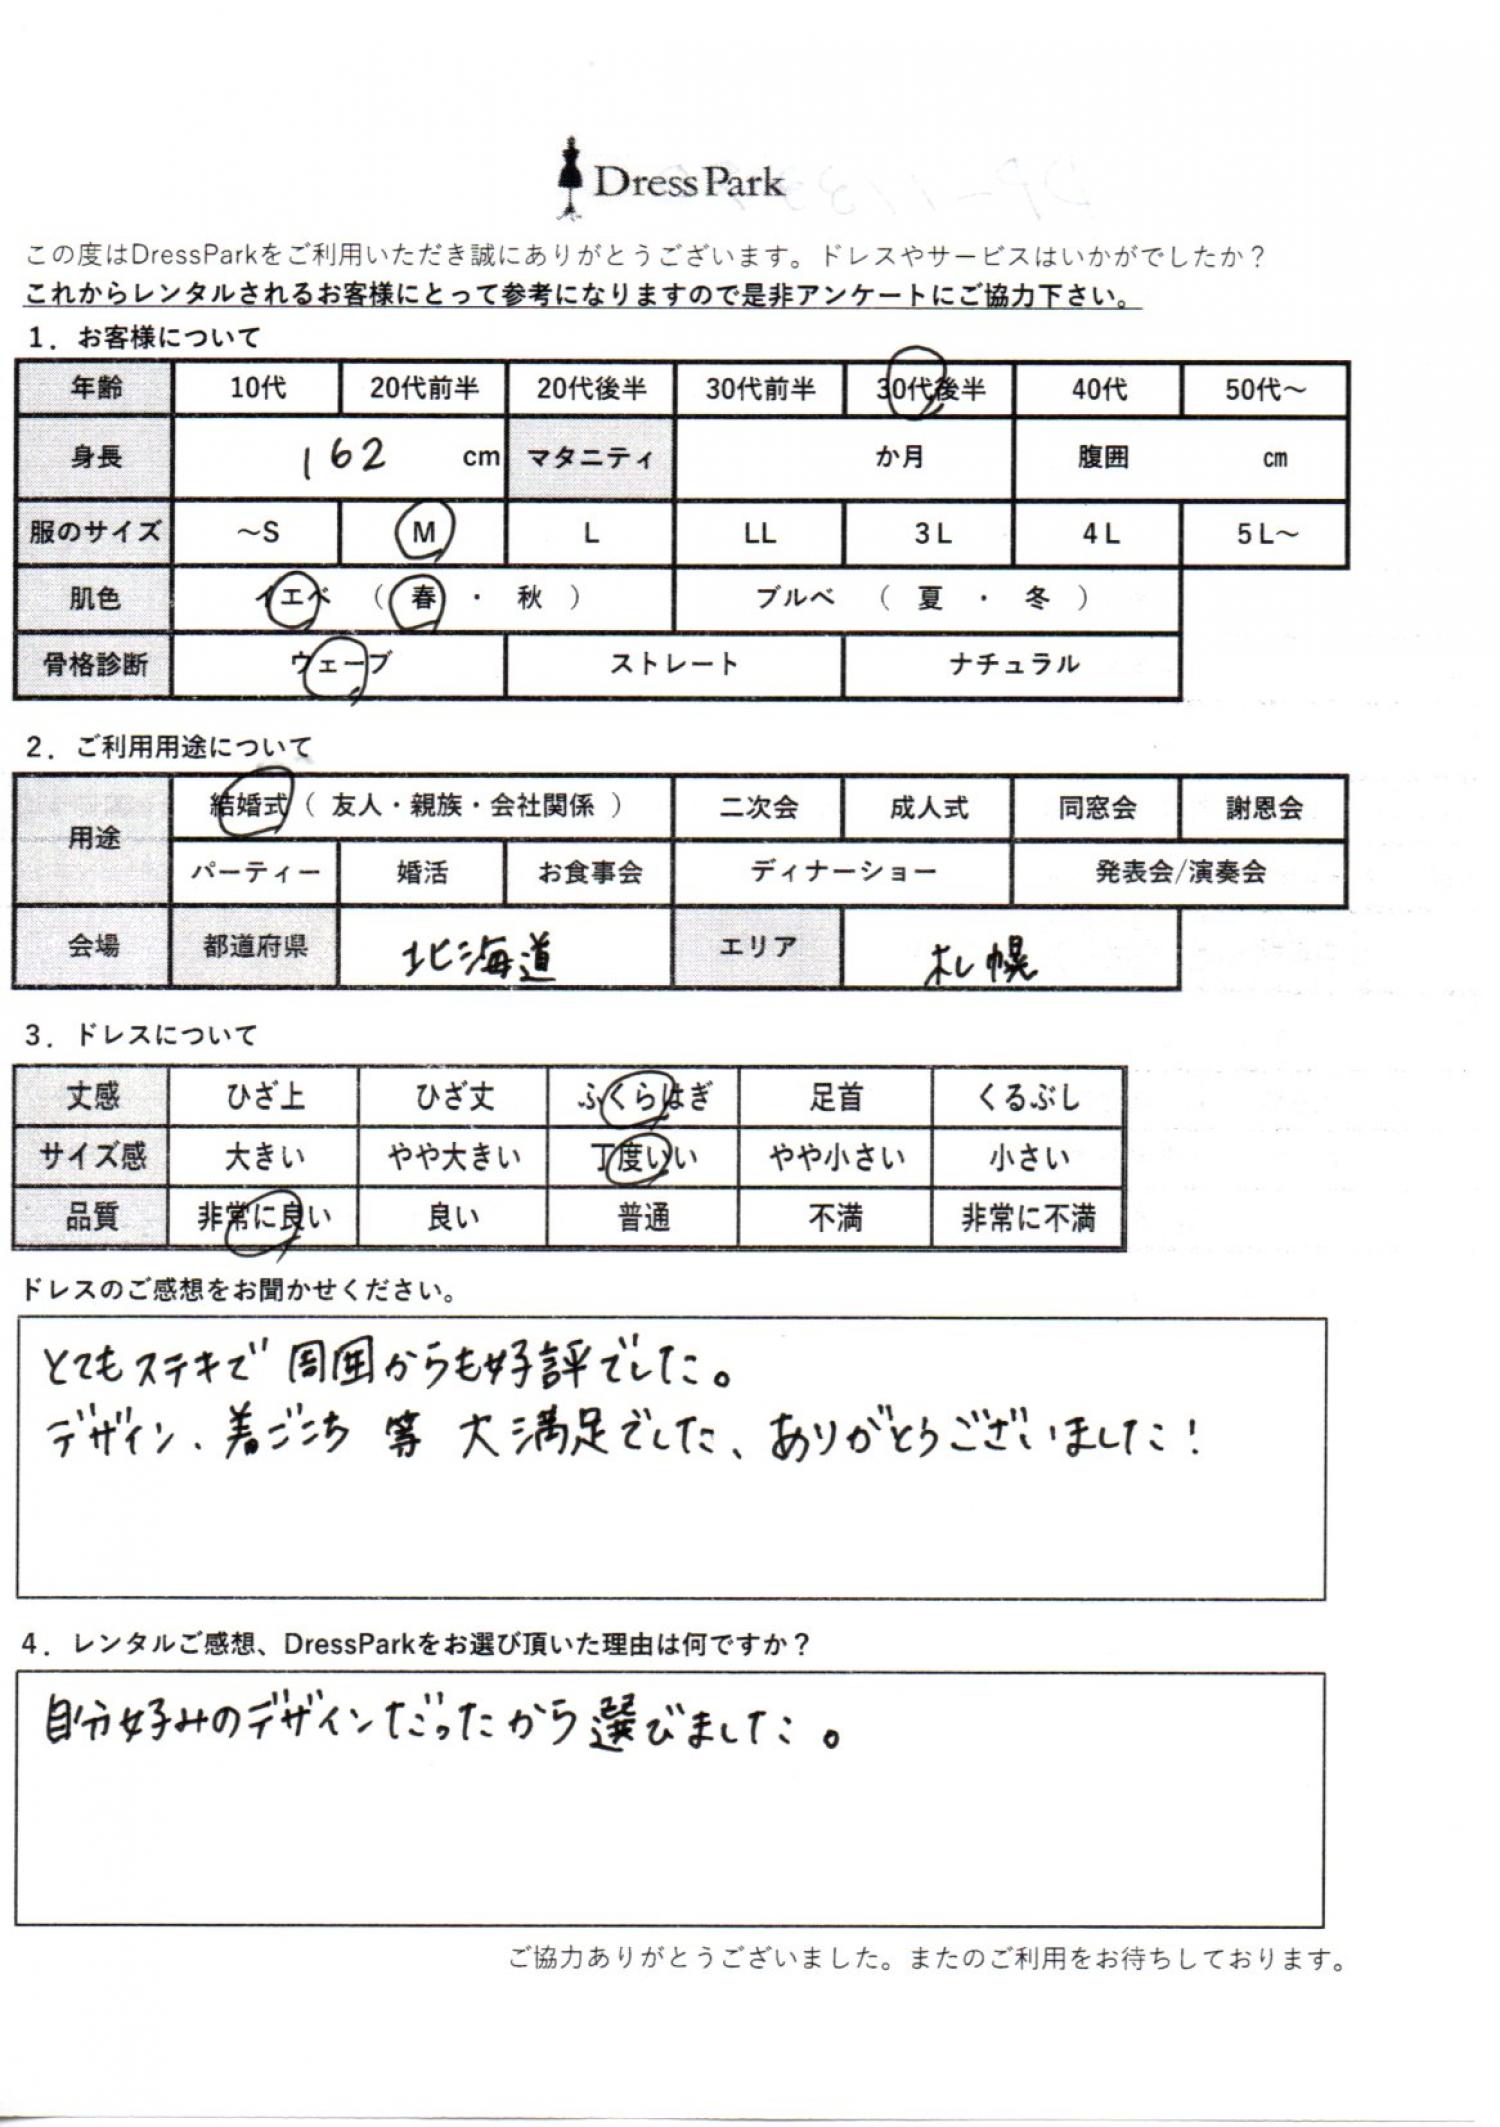 Dress Park
この度はDressParkをご利用いただき誠にありがとうございます。ドレスやサービスはいかがでしたか？
これからレンタルされるお客様にとって参考になりますので是非アンケートにご協力下さい。
1．お客様について
年齢 10代 20代前半 20代後半 30代前半 30代後半 40代 50代～
身長 162 cm マタニティ か月 腹囲 ㎝
服のサイズ ～S M L LL 3L 4L 5L～
肌色 イエベ （ 春 ・ 秋 ） ブルベ （ 夏 ・ 冬 ）
骨格診断 ウェーブ ストレート ナチュラル
2．ご利用用途について
用途 結婚式（ 友人・親族・会社関係 ） 二次会 成人式 同窓会 謝恩会
パーティー 婚活 お食事会 ディナーショー 発表会/演奏会
会場 都道府県 北海道 エリア 札幌
3．ドレスについて
丈感 ひざ上 ひざ丈 ふくらはぎ 足首 くるぶし
サイズ感 大きい やや大きい 丁度いい やや小さい 小さい
品質 非常に良い 良い 普通 不満 非常に不満
ドレスのご感想をお聞かせください。
とてもステキで周囲からも好評でした。
デザイン、着ごこち 等 大満足でした、ありがとうございました！
4．レンタルご感想、DressParkをお選び頂いた理由は何ですか？
自分好みのデザインだったから選びました。
ご協力ありがとうございました。またのご利用をお待ちしております。